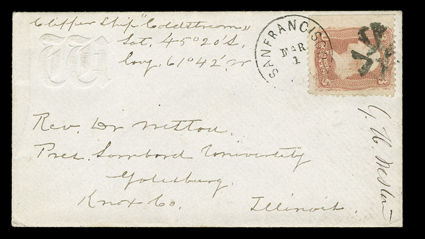 Clipper Ship "Coldstream"
Lat. 45°20'S.
Long. 61°42'W
SAN FRANCISCO
MAR
1
Rev. Dr Weston
Pres. Lombard University
Galesburg.
Knox Co. Illinois.